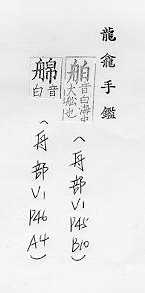 龍龕手鑑
舶音白海中大船也
(舟部V1P45B10)
䑄音白
(舟部V1P46A4)